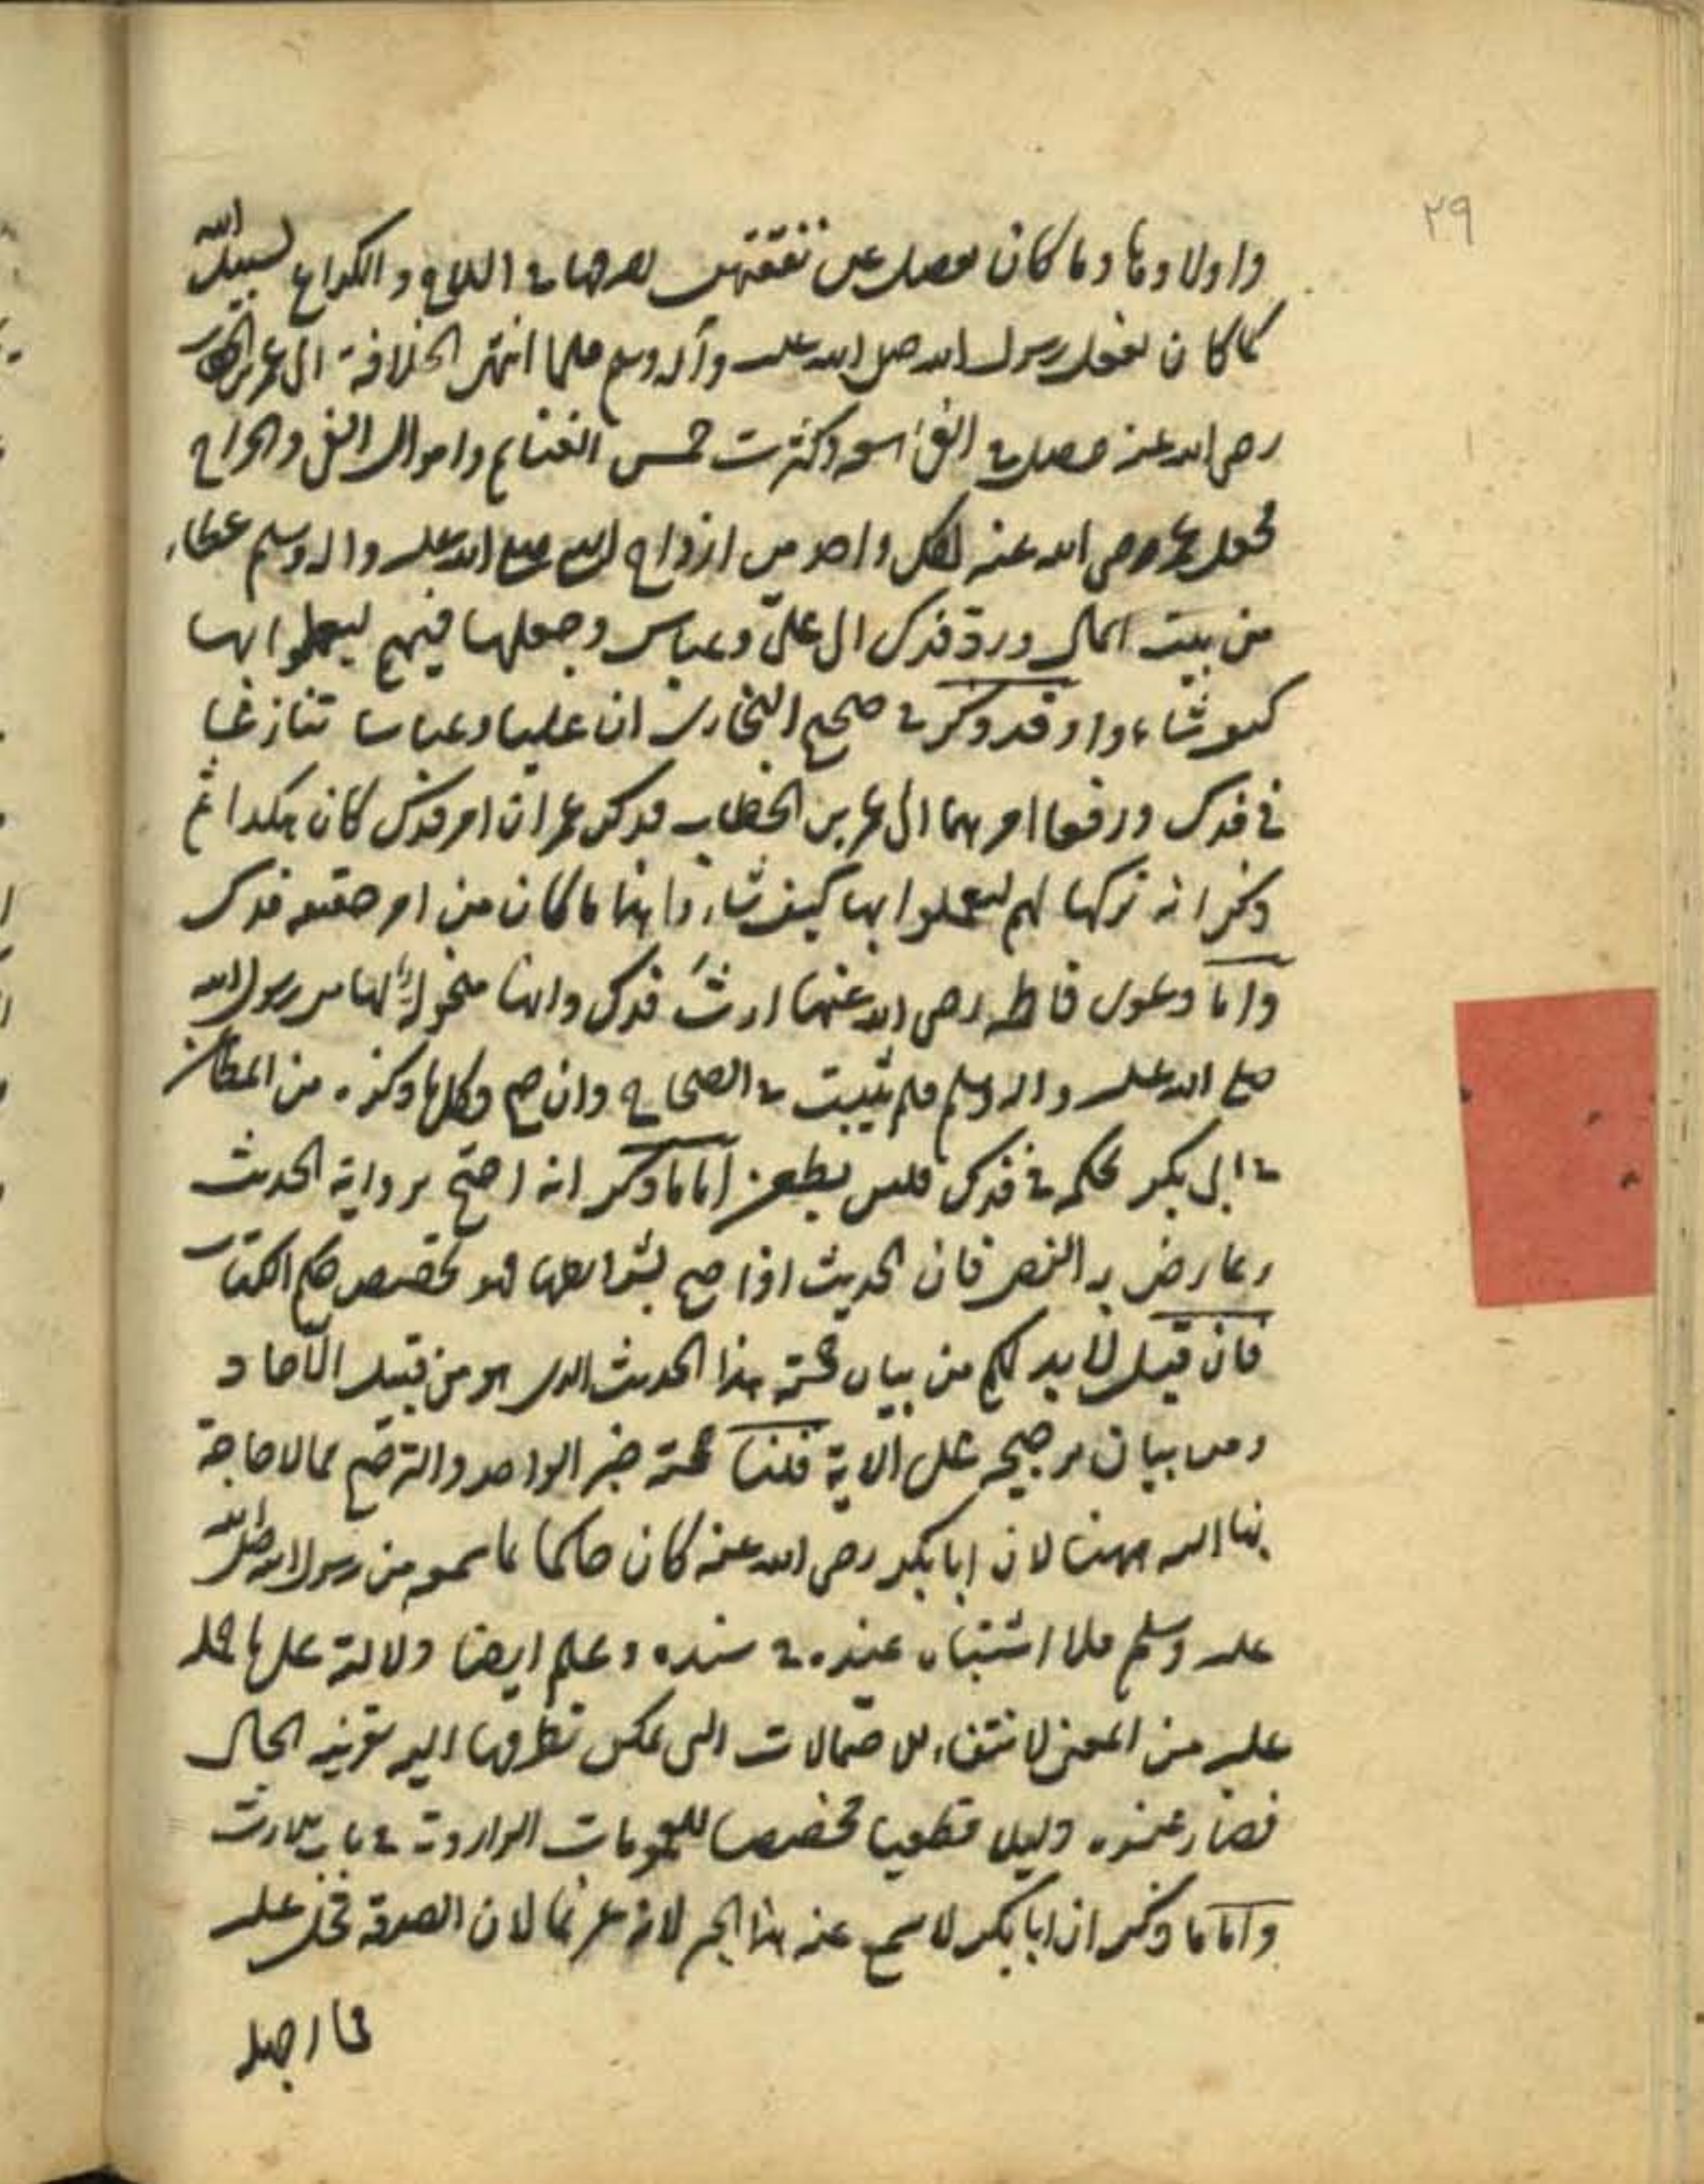 ٢٩
واولادها وما كان يفضل عن نفقتهن يصرفها في السلاح والكراع لسبيل الله
كما كان يفعل رسول الله صلى الله عليه وآله وسلم فلما انتهى الخلافة الى عمر بن الخطاب
رضى الله عنه حصل في الفئ سعة وكثرت خمس الغنايم واموال الفئ والخراج
فجعل عمر رضى الله عنه لكل واحد من ازواج النبي صلى الله عليه واله وسلم عطاء
من بيت المال ورد فدك الى علىّ وعباس وجعلها فيهم ليعملوا بها
كيف شاءوا وقد ذكر في صحيح البخارى ان عليا وعباسا تنازعا
فى فدك ورفعا امرهما الى عمر بن الخطاب فذكر عمر ان امر فدك كان هكذا ثم
ذكر انه تركها لهم ليعملوا بها كيف شاء فهذا ما كان من امر حقيقة فدك
واما دعوى فاطمه رضى الله عنها ارث فدك وانها منحولة لها من رسول الله
صلى الله عليه واله وسلم فلم يثبت في الصحاح وان صح فكلما ذكره من المطاعن
في ابى بكر بحكمه في فدك فليس بطعن اما ما ذكر انه احتج برواية الحديث
وعارض به النص فان الحديث اذا صح بشرائطها فهو تخصيص حكم الكتاب
فان قيل لابد لكم من بيان حجية هذا الحديث الذى هو من قبيل الآحاد
ومن بيان ترجيحه على الآية قلنا حجية خبر الواحد والترجيح مما لا حاجة
بنا اليه ههنا لان ابا بكر رضى الله عنه كان حاكما بما سمعه من رسول الله صلى الله
عليه وسلم فلا اشتباه عنده في سنده وعلم ايضا دلالته على ما حمله
عليه من المعنى لانتفاء الاحتمالات التى يمكن تطرقها اليه بقرينة الحال
فصار عنده دليلا قطعيا مخصصا للعمومات الواردة في باب الارث
واما ما ذكر ان ابا بكر لا يسمع عنه هذا الخبر لانه غريما لان الصدقة تحل عليه